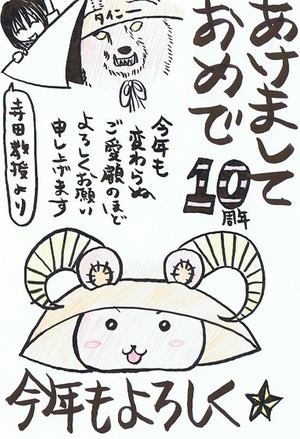 あけまして
おめで
10
周年
タイ仁
今年も
変わらぬ
ご愛顧のほど
よろしくお願い
申し上げます
寺田教授より
今年もよろしく